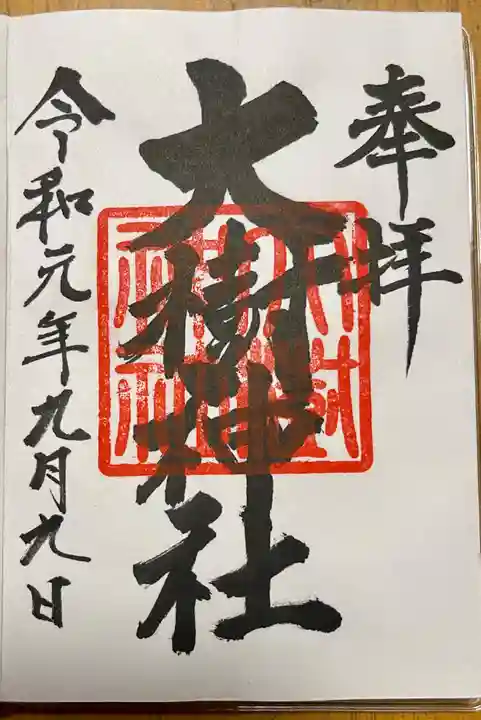 奉拝
大樹神社
令和元年九月九日